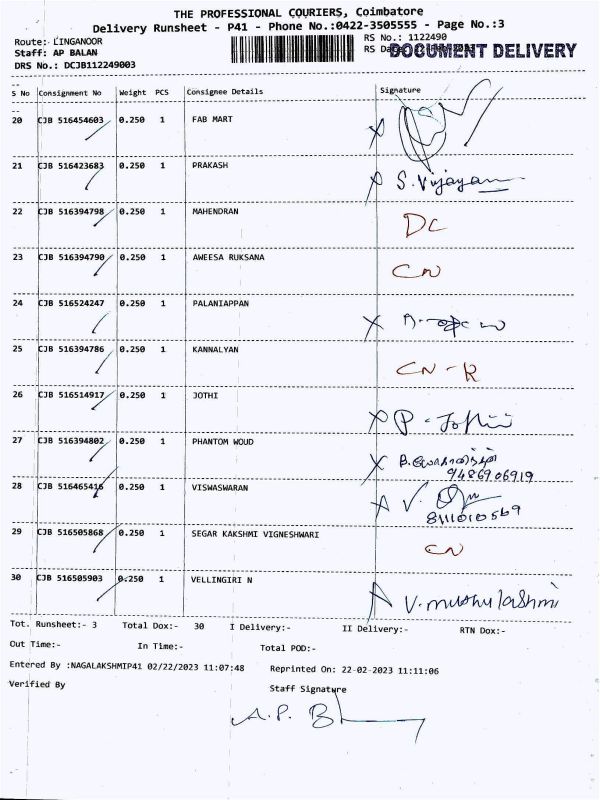 THE PROFESSIONAL COURIERS, Coimbatore
Delivery Runsheet - P41 - Phone No.:0422-3505555 - Page No.:3
Route: LINGANOOR RS No.: 1122490
Staff: AP BALAN RS Date DOCUMENT DELIVERY
DRS No.: DCJB112249003
S No Consignment No Weight PCS Consignee Details Signature
20 CJB 516454603 0.250 1 FAB MART
21 CJB 516423683 0.250 1 PRAKASH S. Vijayan
22 CJB 516394798 0.250 1 MAHENDRAN DC
23 CJB 516394790 0.250 1 AWEESA RUKSANA CN
24 CJB 516524247 0.250 1 PALANIAPPAN
25 CJB 516394786 0.250 1 KANNALYAN CN - R
26 CJB 516514917 0.250 1 JOTHI P. Jothi
27 CJB 516394802 0.250 1 PHANTOM WOUD
9486906919
28 CJB 516465416 0.250 1 VISWASWARAN V.
8111010569
29 CJB 516505868 0.250 1 SEGAR KAKSHMI VIGNESHWARI CN
30 CJB 516505903 0.250 1 VELLINGIRI N V. muthulashmi
Tot. Runsheet:- 3 Total Dox:- 30 I Delivery:- II Delivery:- RTN Dox:-
Out Time:- In Time:- Total POD:-
Entered By :NAGALAKSHMIP41 02/22/2023 11:07:48 Reprinted On: 22-02-2023 11:11:06
Verified By Staff Signature
A.P. B